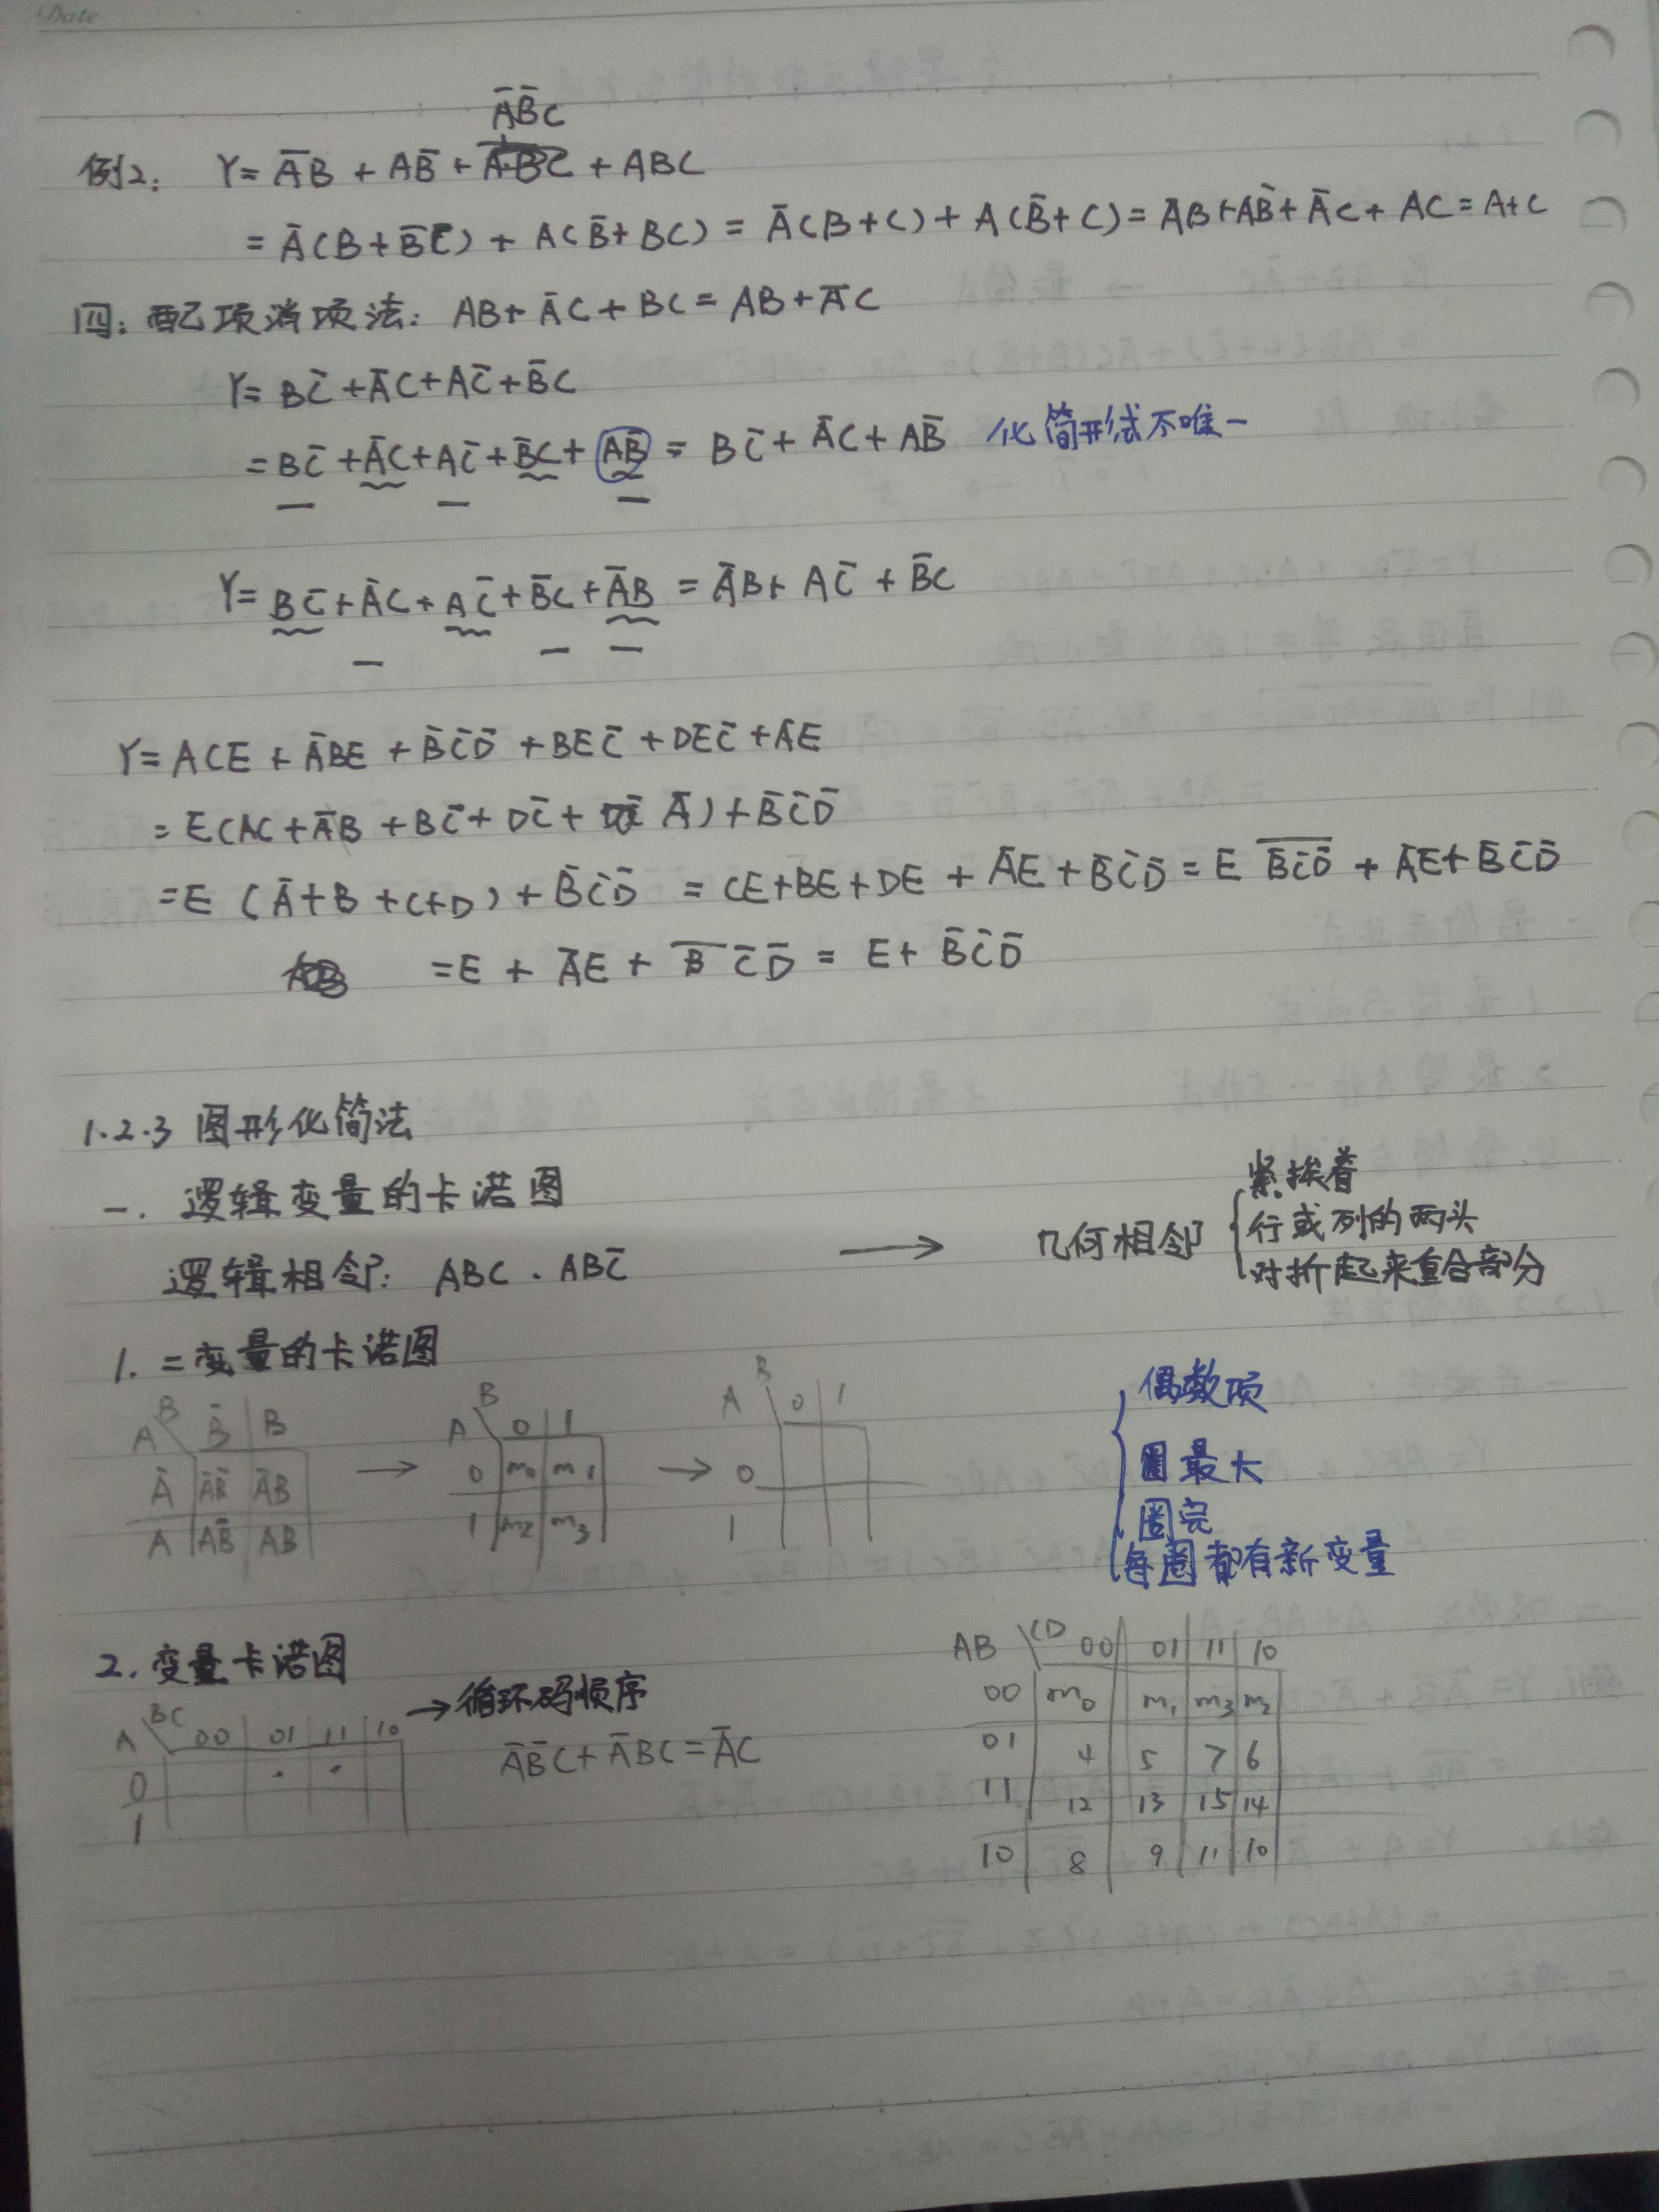 Date
A̅B̅C
例2: Y = A̅B + AB̅ + + ABC
= A̅(B + B̅C) + A(B̅ + BC) = A̅(B+C) + A(B̅+C) = A̅B + AB̅ + A̅C + AC = A+C
四: 配项消项法: AB + A̅C + BC = AB + A̅C
Y = BC̅ + A̅C + AC̅ + B̅C
= BC̅ + A̅C + AC̅ + B̅C + AB̅ = BC̅ + A̅C + AB̅ 化简形式不唯一
Y = BC̅ + A̅C + AC̅ + B̅C + A̅B = A̅B + AC̅ + B̅C
Y = ACE + A̅BE + B̅C̅D̅ + BEC̅ + DEC̅ + A̅E
= E(AC + A̅B + BC̅ + DC̅ + A̅) + B̅C̅D̅
= E (A̅ + B + C + D) + B̅C̅D̅ = CE + BE + DE + A̅E + B̅C̅D̅ = E \overline{B̅C̅D̅} + A̅E + B̅C̅D̅
= E + A̅E + B̅C̅D̅ = E + B̅C̅D̅
1.2.3 图形化简法
一. 逻辑变量的卡诺图
逻辑相邻: ABC . ABC̅ → 几何相邻 {
紧挨着
行或列的两头
对折起来重合部分
1. 二变量的卡诺图
A\B B̅ B
A̅ A̅B̅ A̅B
A AB̅ AB
→
A\B 0 1
0 m₀ m₁
1 m₂ m₃
→
A\B 0 1
0
1
{
偶数项
圈最大
圈完
每圈都有新变量
2. 变量卡诺图
A\BC 00 01 11 10 → 循环码顺序
0 . .
1
A̅B̅C + A̅BC = A̅C
AB\CD 00 01 11 10
00 m₀ m₁ m₃ m₂
01 4 5 7 6
11 12 13 15 14
10 8 9 11 10